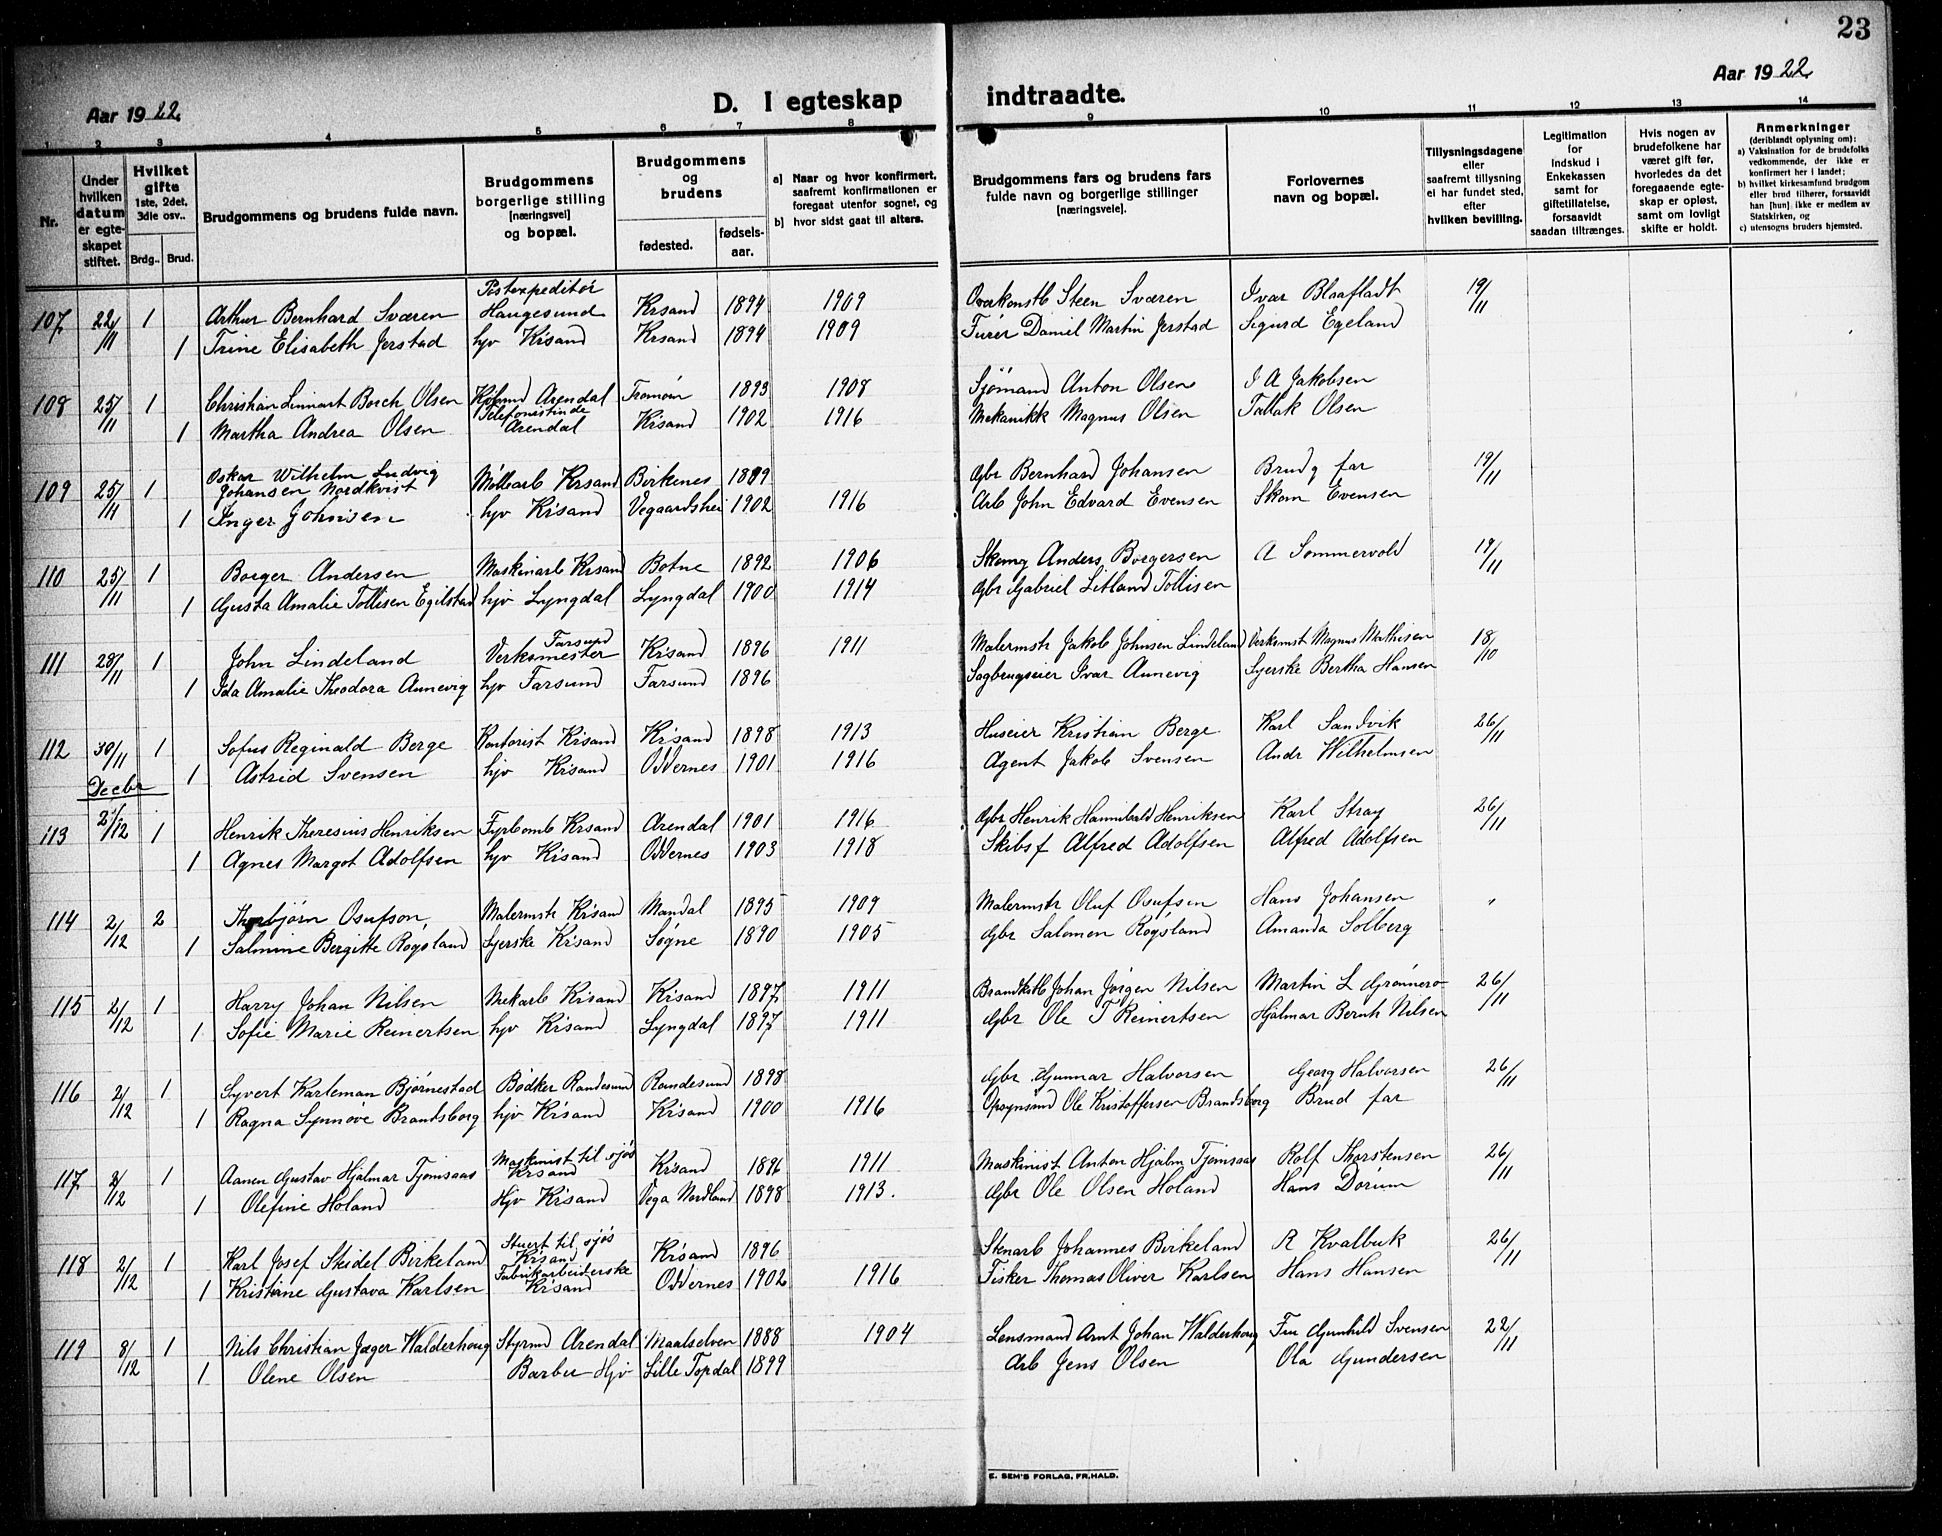 23
Aar 1922. D. I egteskap indtraadte. Aar 1922.
1 2 3 4 5 6 7 8 9 10 11 12 13 14
Nr.
Under hvilken datum er egteskapet stiftet.
Hvilket gifte 1ste, 2det, 3die osv..
Brdg.. Brud.
Brudgommens og brudens fulde navn.
Brudgommens borgerlige stilling [næringsvei] og bopæl.
Brudgommens og brudens
fødested. fødselsaar.
a) Naar og hvor konfirmert, saafremt konfirmationen er foregaat utenfor sognet, og
b) hvor sidst gaat til alters.
Brudgommens fars og brudens fars fulde navn og borgerlige stillinger [næringsveie].
Forlovernes navn og bopæl.
Tillysningsdagene eller saafremt tillysning ei har fundet sted, efter hvilken bevilling.
Legitimation for Indskud i Enkekassen samt for giftetillatelse, forsaavidt saadan tiltrænges.
Hvis nogen av brudefolkene har været gift før, hvorledes da det foregaaende egteskap er opløst, samt om lovligt skifte er holdt.
Anmerkninger (deriblandt oplysning om):
a) Vaksination for de brudefolks vedkommende, der ikke er konfirmert her i landet;
b) hvilket kirkesamfund brudgom eller brud tilhører, forsaavidt han [hun] ikke er medlem av Statskirken, og
c) utensogns bruders hjemsted.
107 22/11 1 Arthur Bernhard Sværen Postexpeditør Haugesund Krsand 1894 1909 Overkonstb Steen Sværen Ivar Blaafladt 19/11
1 Trine Elisabeth Jerstad hjv Krsand Krsand 1894 1909 Furér Daniel Martin Jerstad Sigurd Egeland
108 25/11 1 Christian Linnart Borch Olsen Kolmd Arendal Tromøen 1893 1908 Sjømand Anton Olsen I A Jakobsen
1 Martha Andrea Olsen Telefonistinde Arendal Krsand 1902 1916 Mekanikk Magnus Olsen Tallak Olsen
109 25/11 1 Oskar Wilhelm Ludvig Johansen Nordkvist Møllearb Krsand Birkenes 1889 Gbr Bernhard Johansen Brudg far 19/11
1 Inger Johnsen hjv Krsand Vegaardshei 1902 1916 Arb John Edvard Evensen Skom Evensen
110 25/11 1 Borger Andersen Maskinarb Krsand Botne 1892 1906 Skomg Anders Borgersen A Sommervold 19/11
1 Gusta Amalie Tollisen Egilstad hjv Lyngdal Lyngdal 1900 1914 Gbr Gabriel Litland Tollisen
111 28/11 1 John Lindeland Farsund Verksmester Krsand 1896 1911 Malermstr Jakob Johnsen Lindeland Verksmst Magnus Mathisen 18/10
1 Ida Amalie Theodora Aunevig hjv Farsund Farsund 1896 Sagbrugseier Ivar Aunevig Syerske Bertha Hansen
112 30/11 1 Sofus Reginald Berge Kontorist Krsand Krsand 1898 1913 Huseier Kristian Berge Karl Sandvik 26/11
1 Astrid Svensen hjv Krsand Oddernes 1901 1916 Agent Jakob Svensen Andr Wilhelmsen
Decbr
113 2/12 1 Henrik Theresius Henriksen Fyrbomb Krsand Arendal 1901 1916 Gbr Henrik Hannibald Henriksen Karl Stray 26/11
1 Agnes Margot Adolfsen hjv Krsand Oddernes 1903 1918 Skibsf Alfred Adolfsen Alfred Adolfsen
114 2/12 2 Thorbjørn Osufson Malermstr Krsand Mandal 1895 1909 Malermstr Oluf Osufsen Hans Johansen "
1 Salmine Bergitte Røgsland Syerske Krsand Søgne 1890 1905 Gbr Salomen Røgsland Amanda Solberg
115 2/12 1 Harry Johan Nilsen Mekarb Krsand Krsand 1897 1911 Brandkstb Johan Jørgen Nilsen Martin L Grønnero 26/11
1 Sofie Marie Reinertsen hjv Krsand Lyngdal 1897 1911 Gbr Ole T Reinertsen Hjalmar Bernh Nilsen
116 2/12 1 Syvert Karleman Bjørnestad Bødker Randesund Randesund 1898 Gbr Gunnar Halvorsen Georg Halvorsen 26/11
1 Ragna Synnøve Brandsborg hjv Krsand Krsand 1900 1916 Opsynsmd Ole Kristoffersen Brandsborg Brud far
117 2/12 1 Aanen Gustav Hjalmar Tjomsaas Maskinist til sjøs Krsand Krsand 1896 1911 Maskinist Anton Hjalm Tjomsaas Rolf Thorstensen 26/11
1 Olefine Holand Hjv Krsand Vega Nordland 1898 1913. Gbr Ole Olsen Holand Hans Dørum
118 2/12 1 Karl Josef Skidel Birkeland Stuert til sjøs Krsand Krsand 1896 Stenarb Johannes Birkeland R Kvalbuk 26/11
1 Kristine Gustava Karlsen Fabrikarbeiderske Krsand Oddernes 1902 1916 Fisker Thomas Oliver Karlsen Hans Hansen
119 8/12 1 Nils Christian Jæger Walderhoug Styrmd Arendal Maalselven 1888 1904 Lensmand Arnt Johan Walderhoug Fru Gunhild Svensen 22/11
1 Olene Olsen Barbu Hjv Lille Topdal 1899 Arb Jens Olsen Ola Gundersen
E. SEM'S FORLAG, FR.HALD.